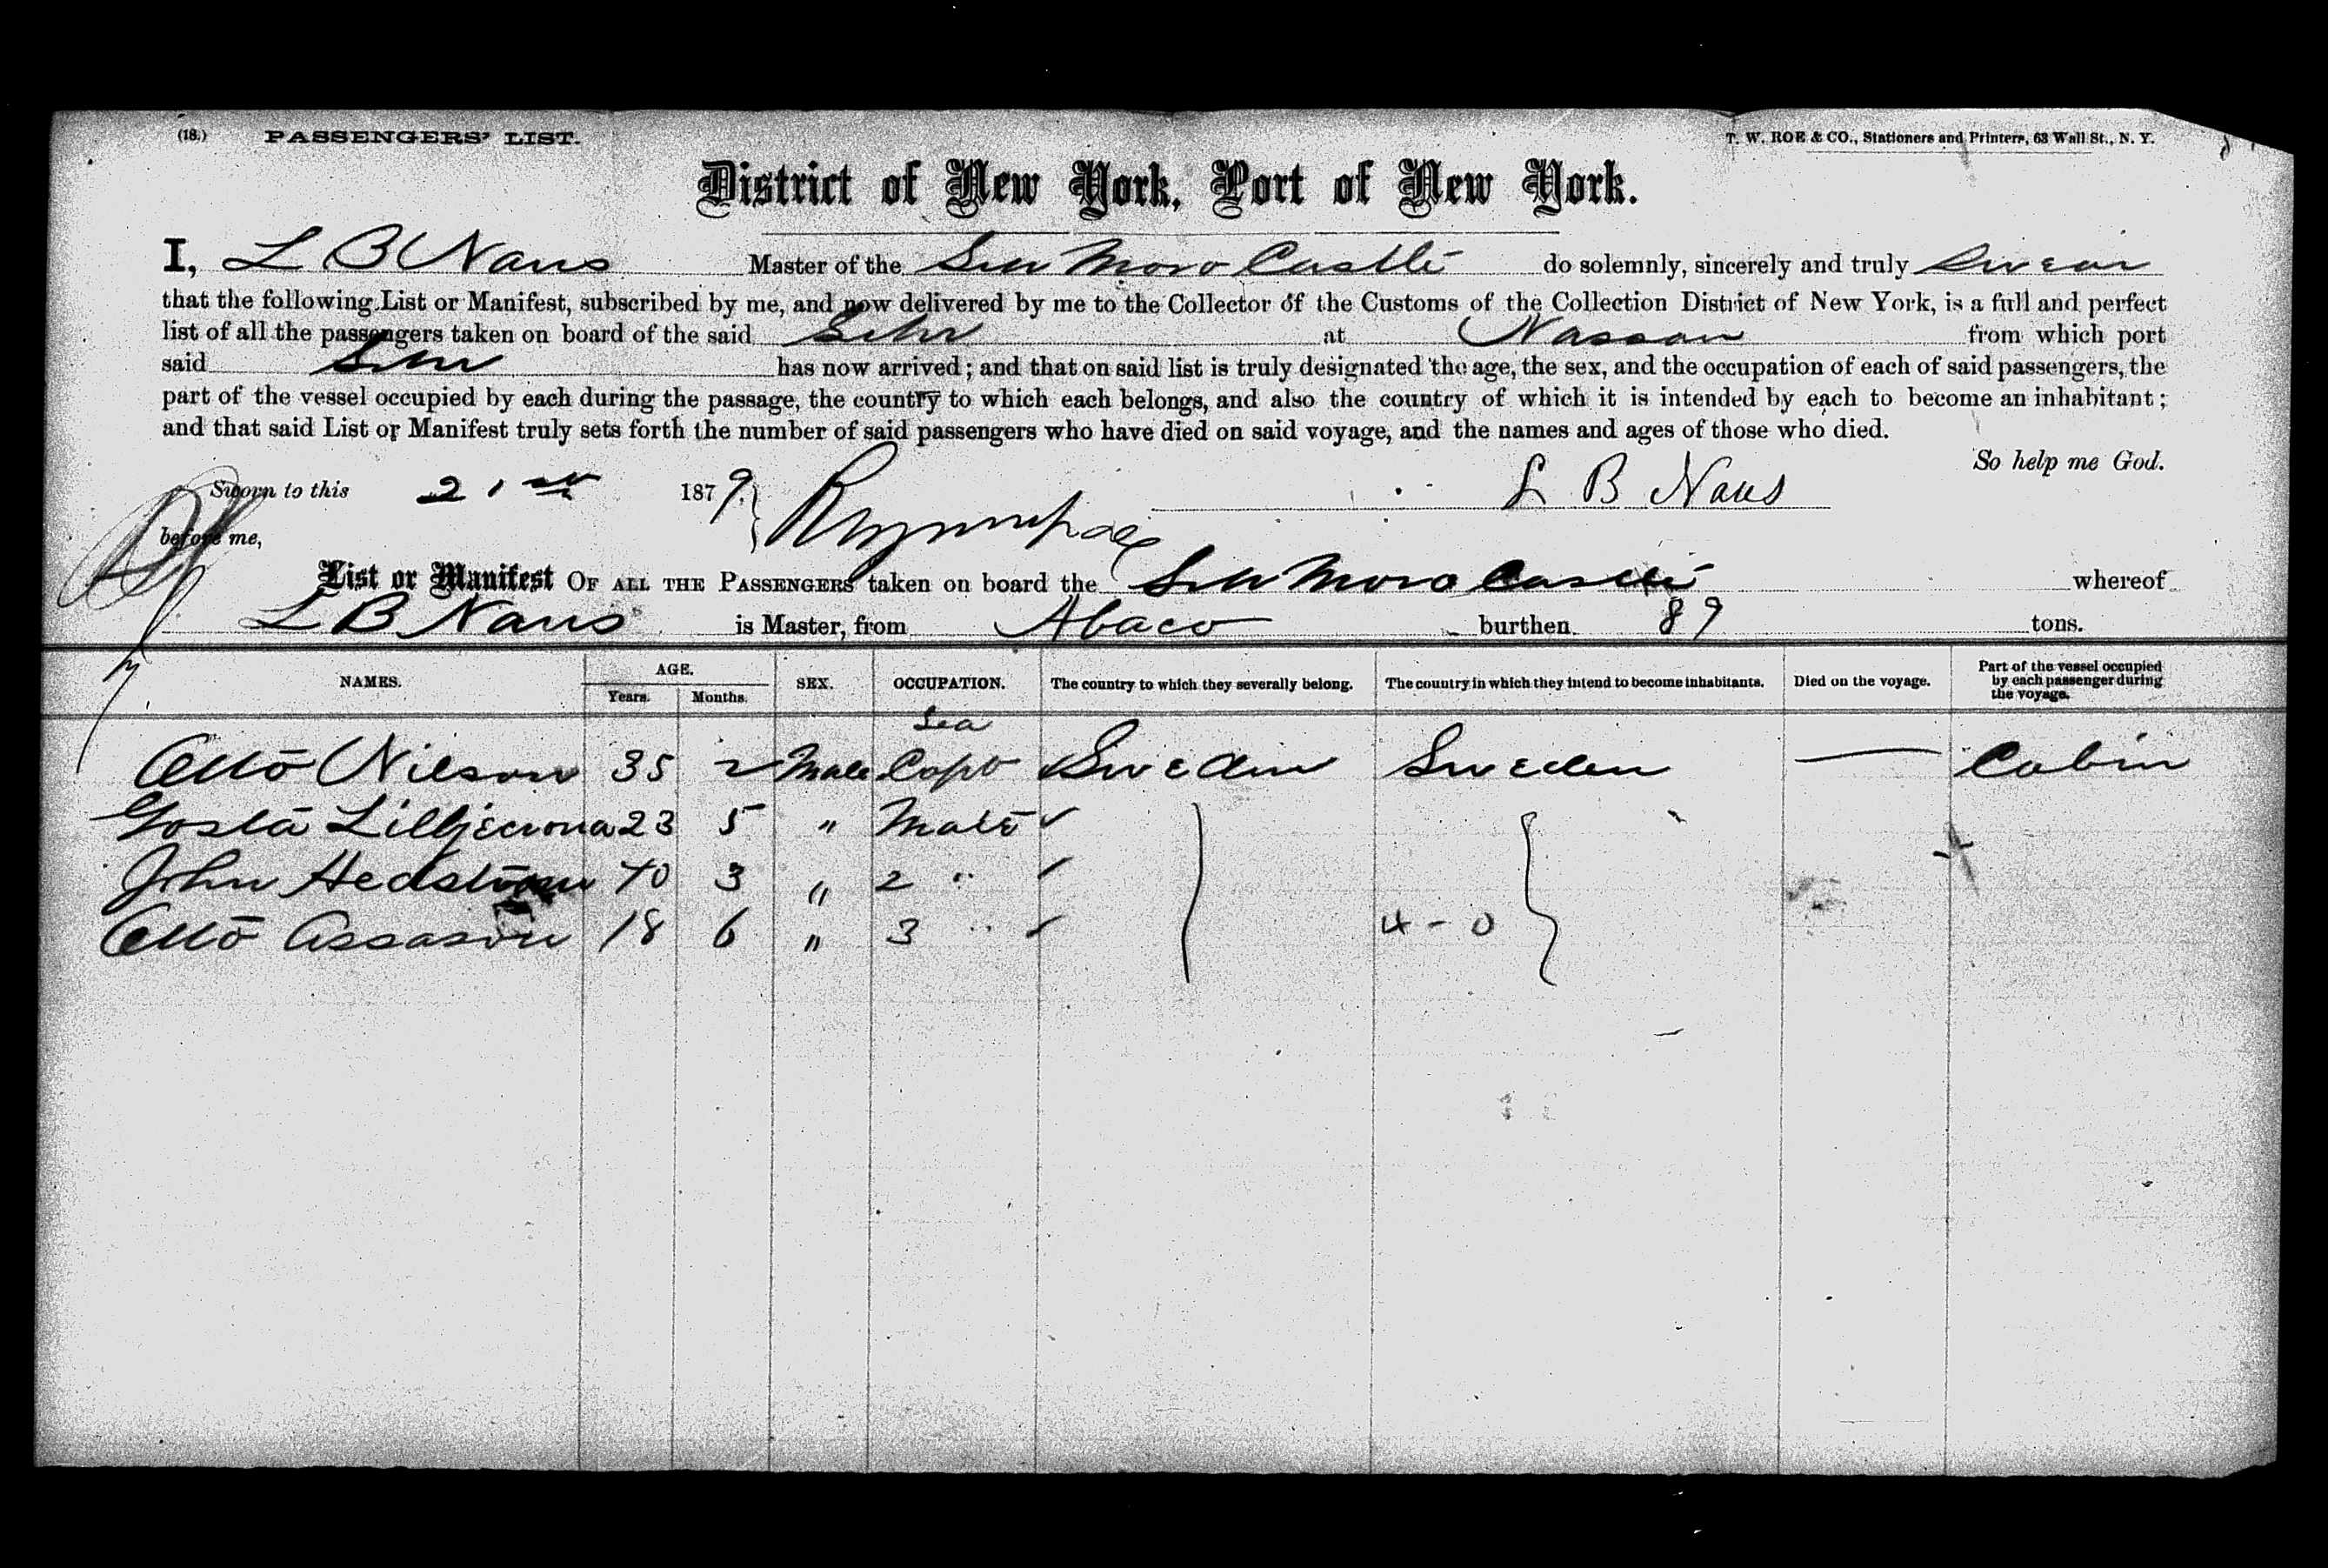 (18.) PASSENGERS' LIST. T. W. ROE & CO., Stationers and Printers, 63 Wall St., N. Y.
District of New York, Port of New York.
I, L B Naus Master of the Schr Moro Castle do solemnly, sincerely and truly Swear
that the following List or Manifest, subscribed by me, and now delivered by me to the Collector of the Customs of the Collection District of New York, is a full and perfect
list of all the passengers taken on board of the said Schr at Nassau from which port
said Schr has now arrived; and that on said list is truly designated the age, the sex, and the occupation of each of said passengers, the
part of the vessel occupied by each during the passage, the country to which each belongs, and also the country of which it is intended by each to become an inhabitant;
and that said List or Manifest truly sets forth the number of said passengers who have died on said voyage, and the names and ages of those who died.
So help me God.
Sworn to this 21st 1879. L B Naus
before me,
List or Manifest OF ALL THE PASSENGERS taken on board the Schr Moro Castle whereof
L B Naus is Master, from Abaco burthen 89 tons.
NAMES. AGE. Years. Months. SEX. OCCUPATION. The country to which they severally belong. The country in which they intend to become inhabitants. Died on the voyage. Part of the vessel occupied by each passenger during the voyage.
Otto Nilson 35 2 Male Sea Capt Sweden Sweden — Cabin
Gosta Lilljecrona 23 5 " Mate
John Hedstrom 40 3 " 2 "
Otto Assason 18 6 " 3 " 4 - 0